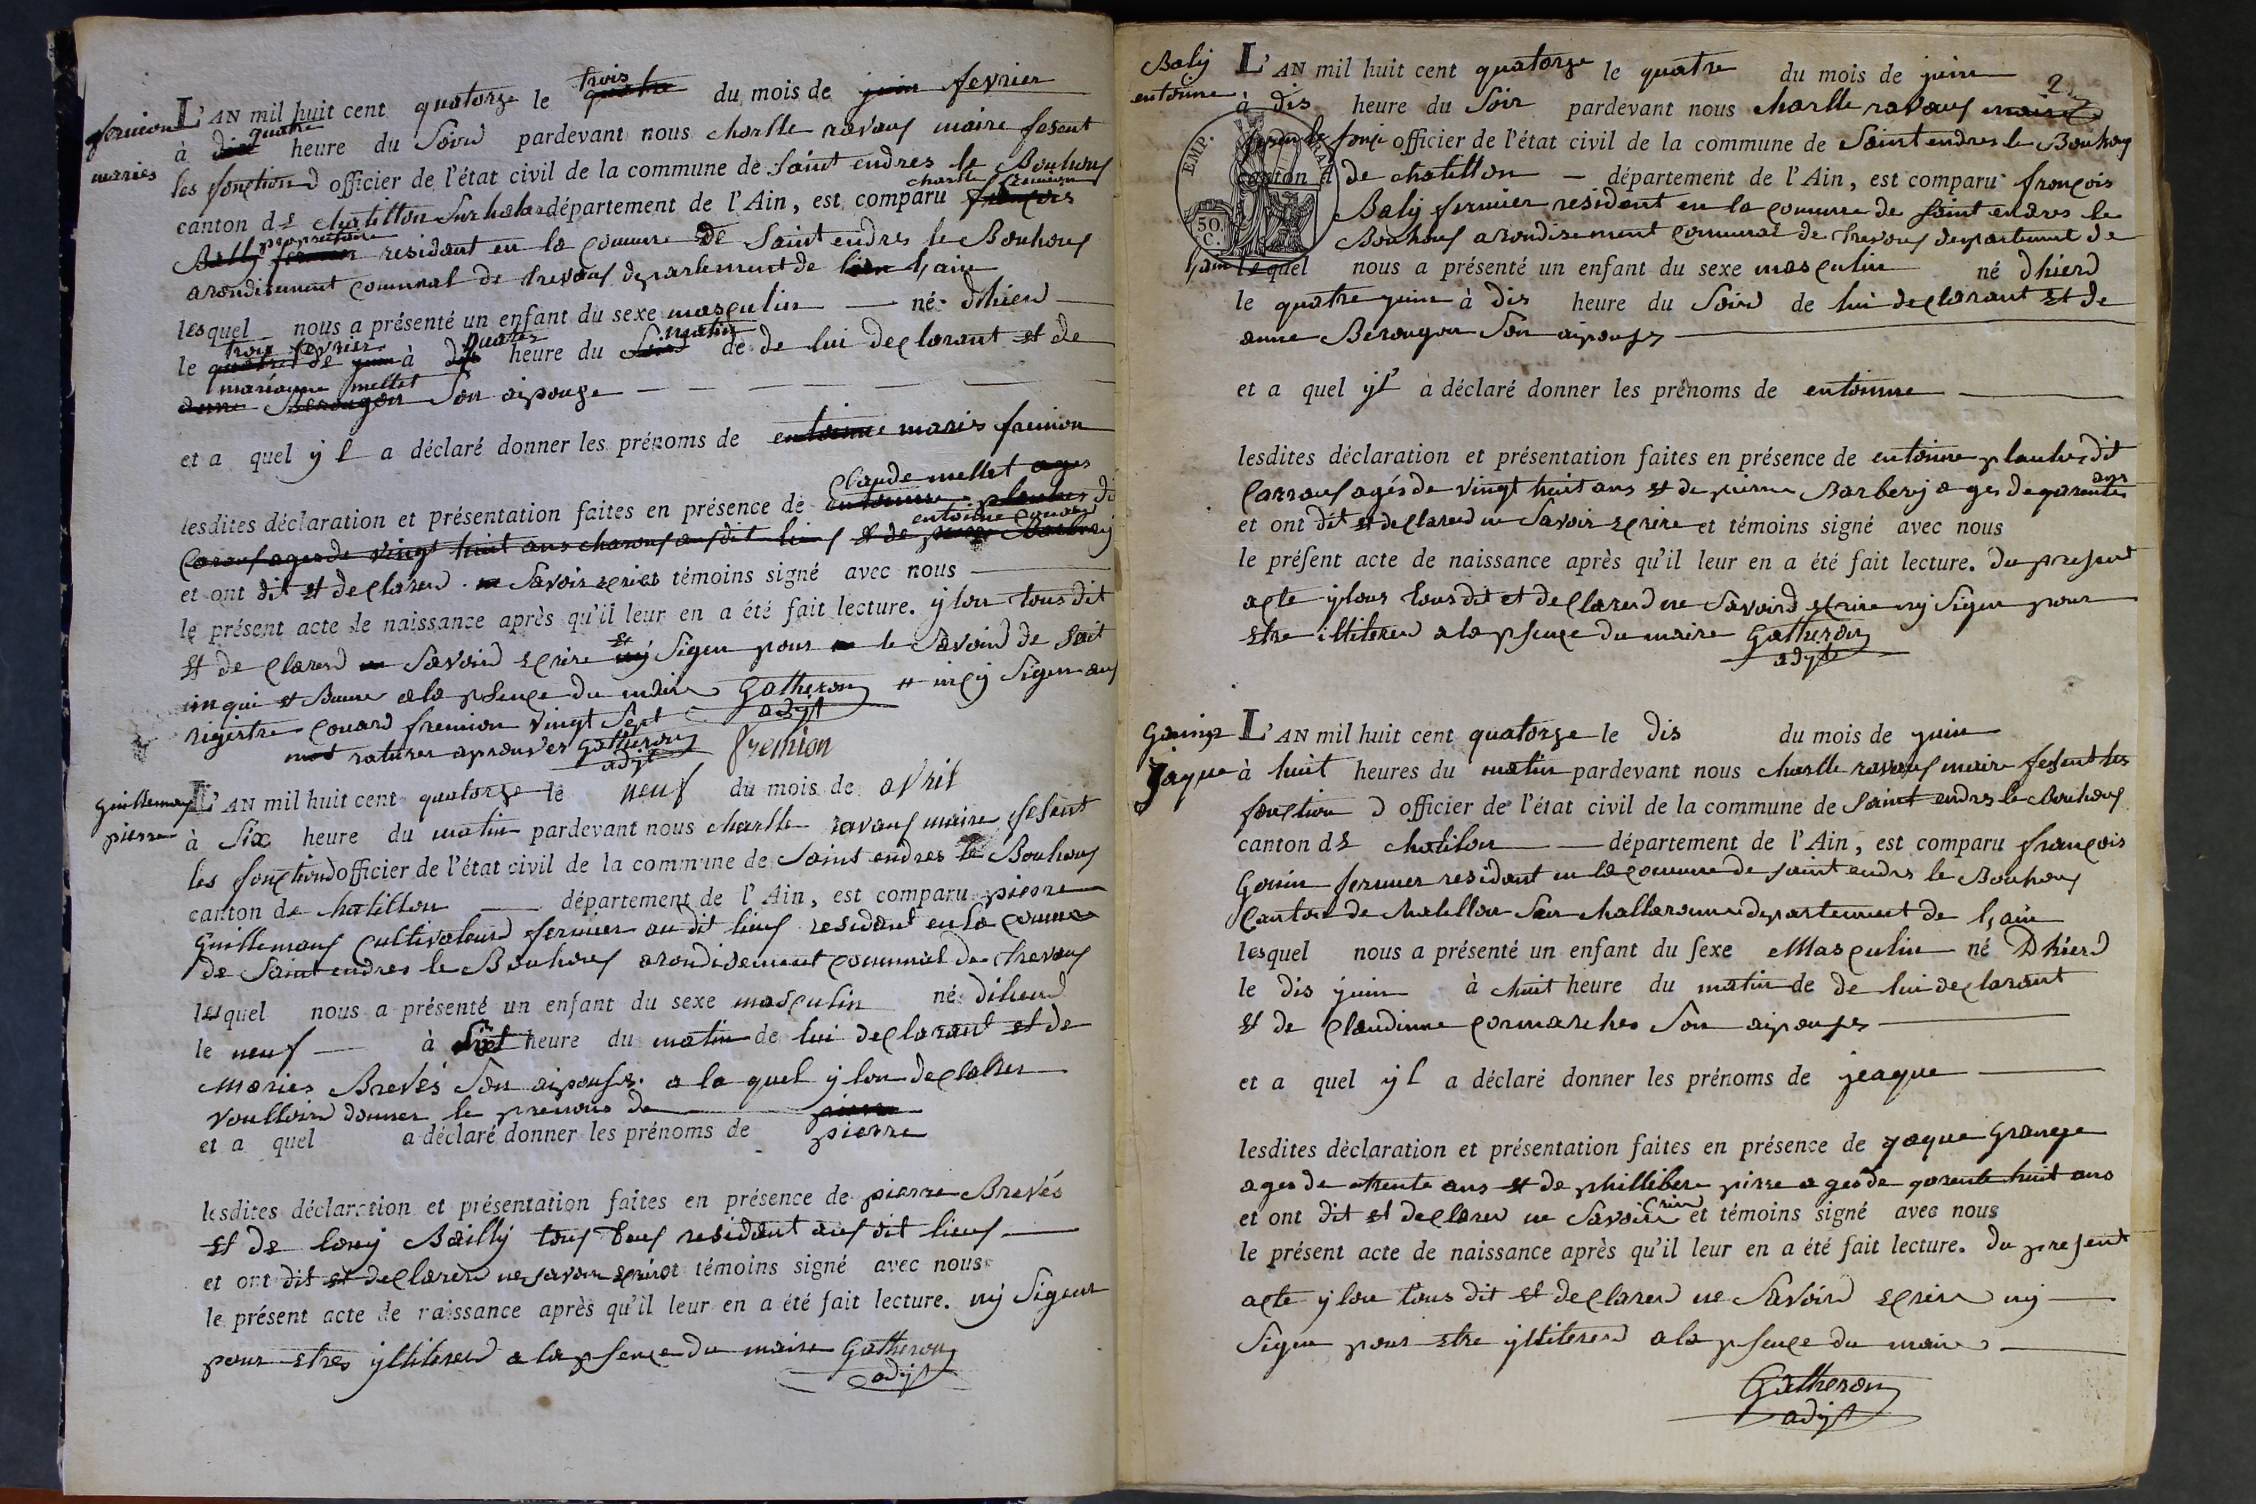 fremion
maries
L'AN mil huit cent quatorze le quatre trois du mois de juin fevrier
à dix quatre heure du Soird pardevant nous charlle ravouf maire fesent
les fonction d officier de l'état civil de la commune de Saint endres le Bouhouf
canton de chatillon Sur département de l'Ain, est comparu françois charlle fremion
Bally fermier propriétaire residant en la comune de Saint endres le Bouhouf
arondisement comunal de trevouf departement de lain
lesquel nous a présenté un enfant du sexe masculin né dhierd
le quatre de juin trois fevrier à dix quatres heure du Soird matin de de lui declarant et de
anne Berougon marianne mellet Son aipouze
et a quel yl a déclaré donner les prénoms de entoinne maries fremion
lesdites déclaration et présentation faites en présence de entoinne plantier dit claude mellet ages
Carouf ages de vingt huit ans et de pierre Barberij entoinne
et ont dit et declarerd ne Savoir ecrire et témoins signé avec nous
le présent acte de naissance après qu'il leur en a été fait lecture. ylon tous dit
et declarerd ne Savoird ecrire nij et Signer pour ne le Savoird de
a la psence du maire Gatheron adjt Signer
rigistre couard fremion vingt Sept
mot ratures aprouves Gatheron adjt fremion
Guillemauf
pierre
L'AN mil huit cent quatorze le neuf du mois de avril
à Six heure du matin pardevant nous charlle ravouf maire fesent
les fonctiond officier de l'état civil de la commune de Saint endres le Bouhouf
canton de chatillon département de l'Ain, est comparu pierre
Guillemauf cultivateurd fermier au dit lieuf residant en la comune
de Saint endres le Bouhouf arondisement comunal de trevouf
lesquel nous a présenté un enfant du sexe masculin né dihierd
le neuf à Sixt heure du matin de lui declarant et de
maries Brevés Son aipouse a la quel ylon declarer
voulloird donner le prenoms de pierre
et a quel a déclaré donner les prénoms de pierre
lesdites déclaration et présentation faites en présence de pierre Brevés
et de louij Bailly touf deuf residant auf dit lieuf
et ont dit et declarerd ne savoir ecrire et témoins signé avec nous
le présent acte de naissance après qu'il leur en a été fait lecture. nij Signer
pour etres yllitererd a la psence du maire Gatheron
adjt
2
Balij
entoinne
L'AN mil huit cent quatorze le quatre du mois de juin
à dis heure du Soir pardevant nous charlle ravouf maire
fesen le fonc officier de l'état civil de la commune de Saint endres le Bouhouf
EMP.
50.
C.
canton d de chatillon département de l'Ain, est comparu françois
Balij fermier resident en la comune de saint endres le
Bouhouf arondisement comunal de trevouf departement de
lain lequel nous a présenté un enfant du sexe masculin né dhierd
le quatre juin à dis heure du Soird de lui declarant et de
anne Berougon Son aipouse
et a quel yl a déclaré donner les prénoms de entoinne
lesdites déclaration et présentation faites en présence de entoinne plantier dit
Carrouf agés de vingt huit ans et de pierre Barberij ages de qarentes ans
et ont dit et declarerd ne Savoir ecrire et témoins signé avec nous
le présent acte de naissance après qu'il leur en a été fait lecture. du present
acte ylous tous dit et declarerd ne Savoird ecrire nij Signer pour
etre illitererd a la psence du maire Gatheron
adjt
Gouinp
jaque
L'AN mil huit cent quatorze le dis du mois de juin
à huit heures du matin pardevant nous charlle ravouf maire fesent les
fonction d officier de l'état civil de la commune de Saint endres le Bouhouf
canton de chatilon département de l'Ain, est comparu françois
Gouin fermier residant en la comune de saint endres le Bouhouf
Canton de chatillon Sur challaronne departement de lain
lesquel nous a présenté un enfant du sexe Masculin né Dhierd
le dis juin à huit heure du matin de de lui declarant
et de Claudinne cormarches Son aipouses
et a quel yl a déclaré donner les prénoms de jeaque
lesdites déclaration et présentation faites en présence de jaque Grange
ages de trente ans et de phillibere pirre ages de qarente huit ans
et ont dit et declarer ne Savoir Crire et témoins signé avec nous
le présent acte de naissance après qu'il leur en a été fait lecture. du present
acte ylon tous dit et declarerd ne Savoird ecrire nij
Signer pour etre yllitererd a la psence du maire
Gatheron
adjt